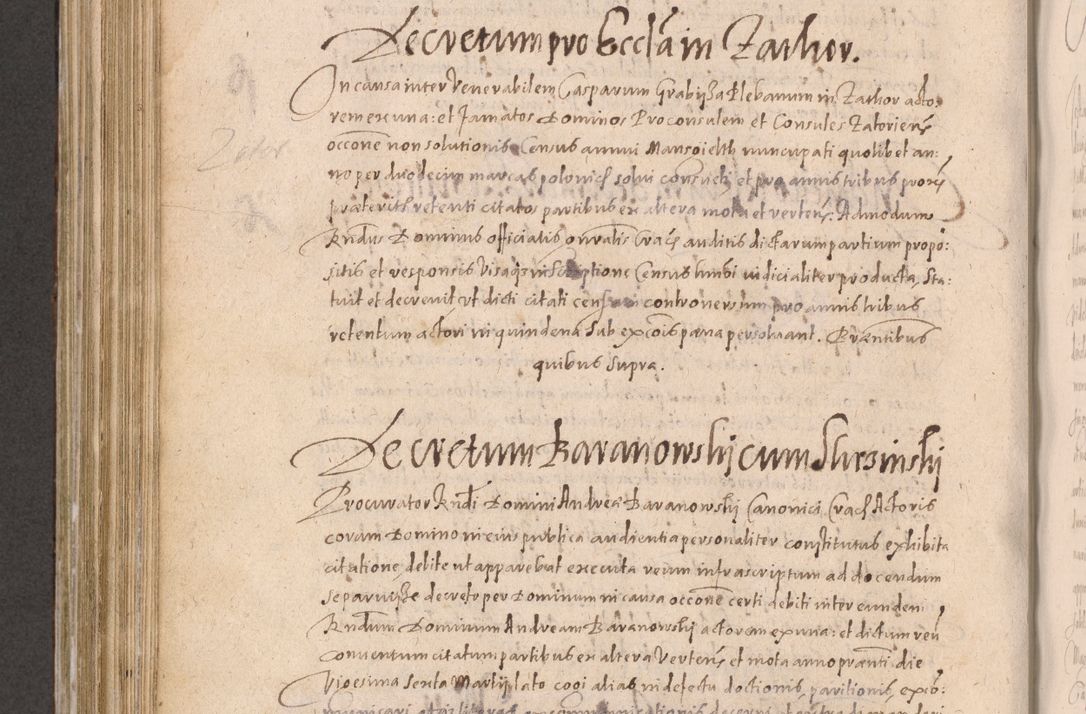 Decretum pro Eccľia in Zathor.
In causa inter Venerabilem Casparum Grabijsza Plebanum in Zathor acto:
rem ex una: et famatos Dominos Proconsulem et Consules Zatorień
occone non solutionis Census annui Mansoielth nuncupati quolibet an:
no per duodecim marcas polonicľ solui consueti, et pro annis tribus proxe
præteritľ retenti citatos partibus ex altera mota et verteń. Admodum
Rndus Dominus officialis gnralis Cracľ auditis dictarum partium propo:
sitis et responsis visaqз inscriptione Census huiusmodi iudicialiter producta, Sta:
tuit et decrevit, vt dicti citati censum controversum pro annis tribus
retentum actori in quindena sub excois pæna persoluant. Præntibus
quibus supra.
Decretum Baranowskij cum Skrzinskij
Procurator Rndi Domini Andreæ Baranowskij Canonici Cracľ Actoris
coram Domino in eius publica audientia personaliter constitutus exhibita
citatione debite ut apparebat executa reum infrascriptum ad docendum
se paruisse decreto per Dominum in causa occone certi debiti inter eundem
Rndum Dominum Andream Baranowskij actorem ex una: et dictum reu
conuentum citatum partibus ex altera Verteń et mota anno prænti die
Vigesima Sexta Martij lato cogi alias in defectu doctionis, paritionis, exco: